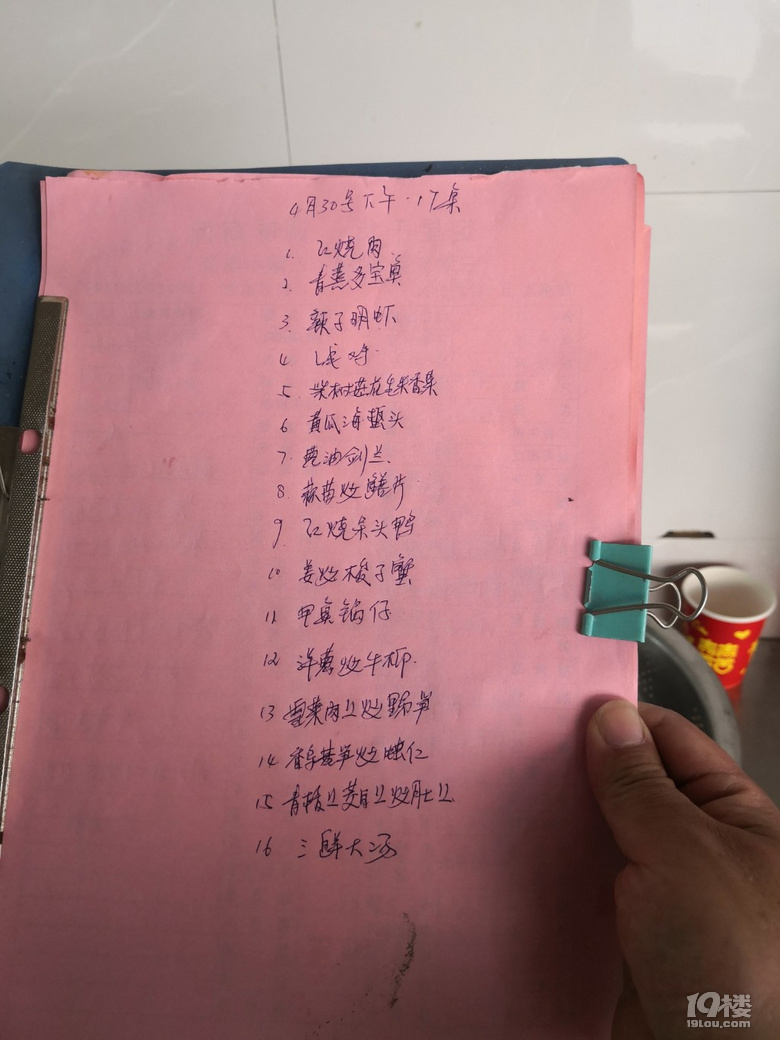 4月30号下午·17桌
1. 红烧肉
2. 青蒸多宝鱼
3. 颈子明虾
4
5 柴树菇花毛菜香菜
6 黄瓜海蜇头
7. 葱油剑兰
8. 蒜苗炒鳝片
9. 红烧呆头鸭
10 姜炒梭子蟹
11 甲鱼锅仔
12 洋葱炒牛柳
13 雪菜肉丝炒野笋
14 香干芦笋炒
15 青椒丝茭白丝炒肚丝
16 三鲜大汤
19楼
19lou.com